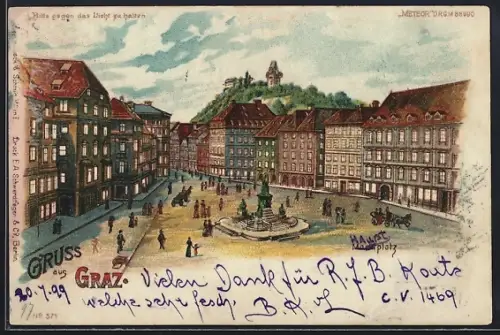 Bitte gegen das Licht zu halten
"METEOR" D.R.G.M 88690
Druck E. A. Schwerdtfeger & Co, Berlin.
Haupt
platz
GRUSS
aus
GRAZ.
Vielen Dank für R. J. B. Karte
20.7.99 welche sehr fesch.
B. K. L
C. V. 1469
Nr. 371